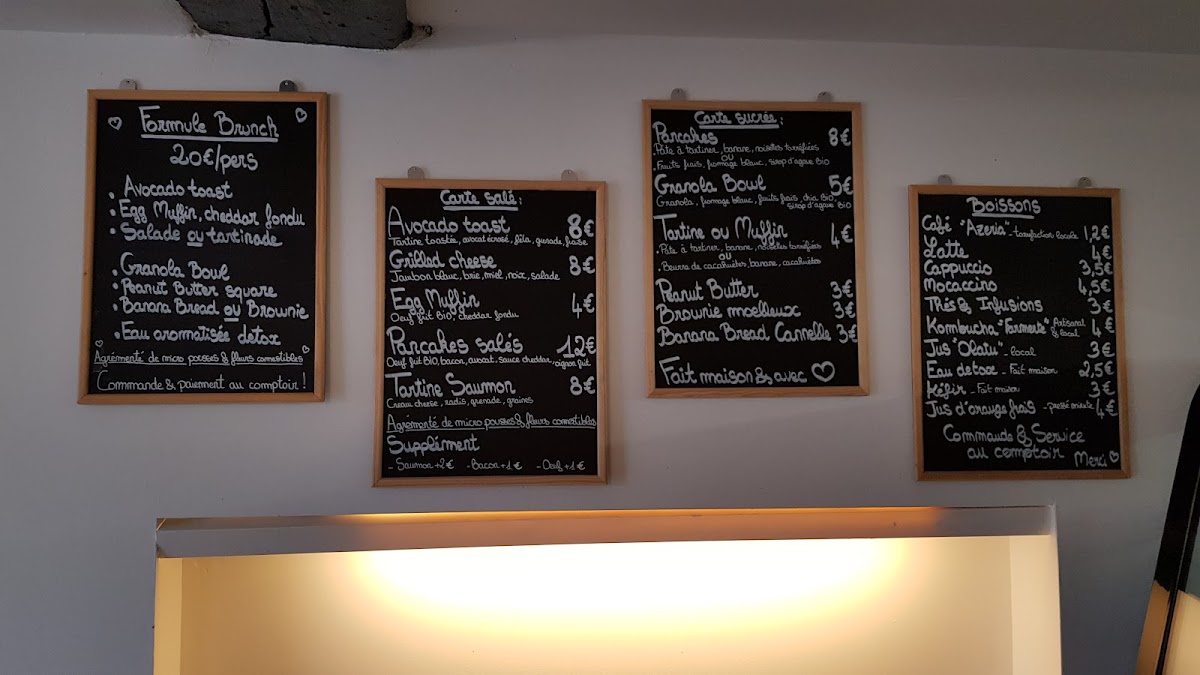 Formule Brunch
20€/pers
• Avocado toast
• Egg Muffin, cheddar fondu
• Salade ou tartinade
• Granola Bowl
• Peanut Butter square
• Banana Bread ou Brownie
• Eau aromatisée detox
Agrémenté de micro pousses & fleurs comestibles
Commande & paiement au comptoir !
Carte salé :
Avocado toast 8€
Tartine toastée, avocat écrasé, féta, grenade, fraise
Grilled cheese 8€
Jambon blanc, brie, miel, noix, salade
Egg Muffin 4€
Oeuf frit BIO, cheddar fondu
Pancakes salés 12€
Oeuf frit BIO, bacon, avocat, sauce cheddar, oignon frit
Tartine Saumon 8€
Cream cheese, radis, grenade, graines
Agrémenté de micro pousses & fleurs comestibles
Supplément
- Saumon +2€ - Bacon +1€ - Oeuf +1€
Carte sucrée :
Pancakes 8€
• Pâte à tartiner, banane, noisettes torréfiées
ou
• Fruits frais, fromage blanc, sirop d'agave BIO
Granola Bowl 5€
Granola, fromage blanc, fruits frais, chia BIO,
sirop d'agave BIO
Tartine ou Muffin 4€
• Pâte à tartiner, banane, noisettes torréfiées
ou
• Beurre de cacahuètes, banane, cacahuètes
Peanut Butter 3€
Brownie moelleux 3€
Banana Bread Cannelle 3€
Fait maison & avec ♡
Boissons
Café "Azeria" - torréfaction locale 1,2€
Latte 4€
Cappuccio 3,5€
Mocaccino 4,5€
Thés & Infusions 3€
Kombucha "Fermenté" Artisanal & local 4€
Jus "Olatu" - local 3€
Eau detox - Fait maison 2,5€
Kéfir - Fait maison 3€
Jus d'orange frais - pressé minute 4€
Commande & Service
au comptoir
Merci ♡